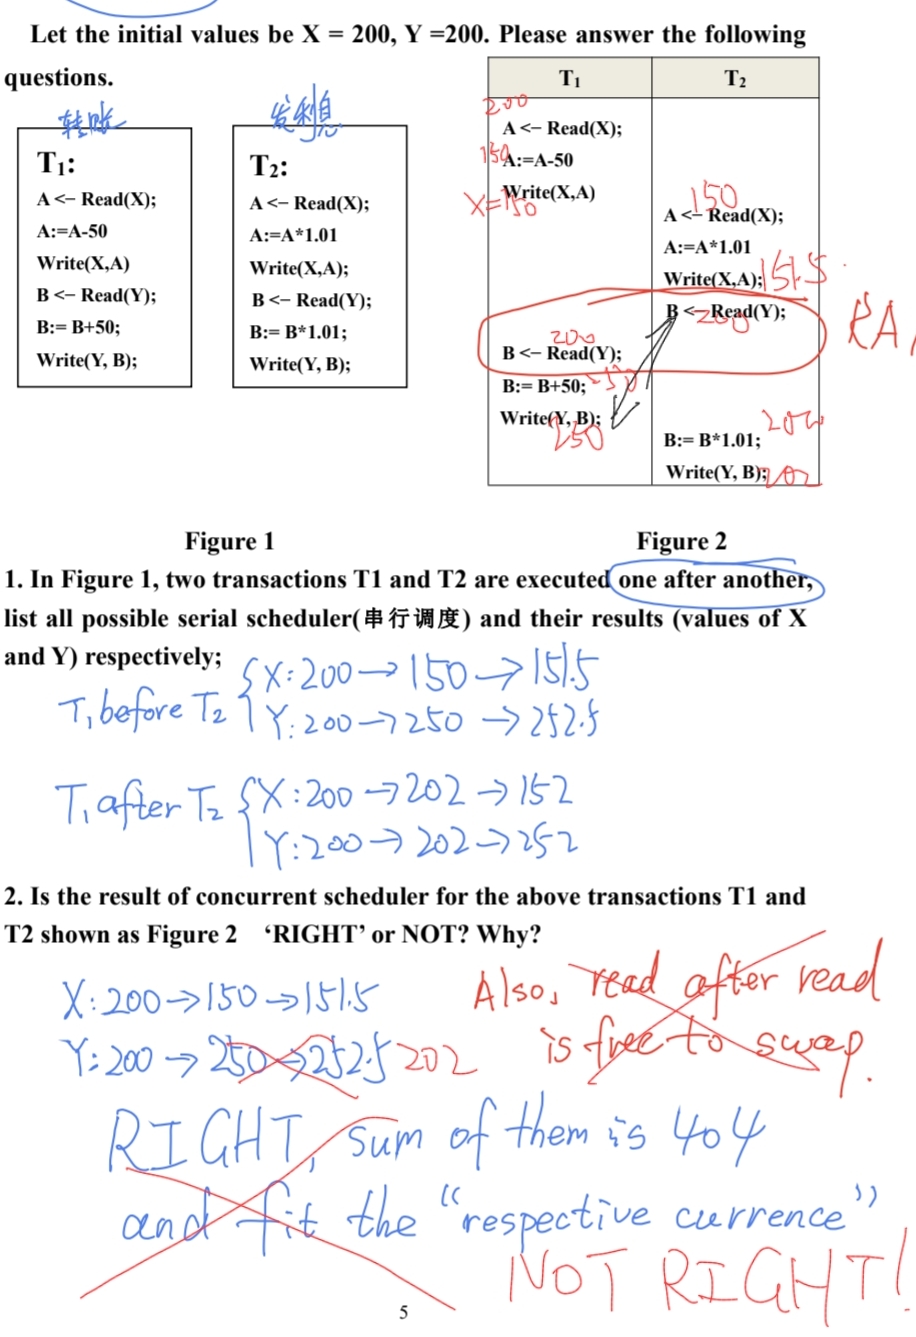 Let the initial values be X = 200, Y =200. Please answer the following
questions.
转账
T₁:
A <– Read(X);
A:=A-50
Write(X,A)
B <– Read(Y);
B:= B+50;
Write(Y, B);
发利息
T₂:
A <– Read(X);
A:=A*1.01
Write(X,A);
B <– Read(Y);
B:= B*1.01;
Write(Y, B);
T₁ T₂
200
A <– Read(X);
150
A:=A-50
Write(X,A)
X=150
150
A <– Read(X);
A:=A*1.01
Write(X,A);
151.5
B <– Read(Y);
200
200
B <– Read(Y);
B:= B+50;
Write(Y, B);
250
B:= B*1.01;
202
Write(Y, B);
202
Figure 1 Figure 2
1. In Figure 1, two transactions T1 and T2 are executed one after another,
list all possible serial scheduler(串行调度) and their results (values of X
and Y) respectively;
T₁ before T₂ { X: 200 → 150 → 151.5
Y: 200 → 250 → 252.5
T₁ after T₂ { X: 200 → 202 → 152
Y: 200 → 202 → 252
2. Is the result of concurrent scheduler for the above transactions T1 and
T2 shown as Figure 2 ‘RIGHT’ or NOT? Why?
X: 200 → 150 → 151.5
Y: 200 → 250 → 252.5 202
Also, read after read
is free to swap.
RIGHT, sum of them is 404
and fit the “respective currence”
NOT RIGHT!
5